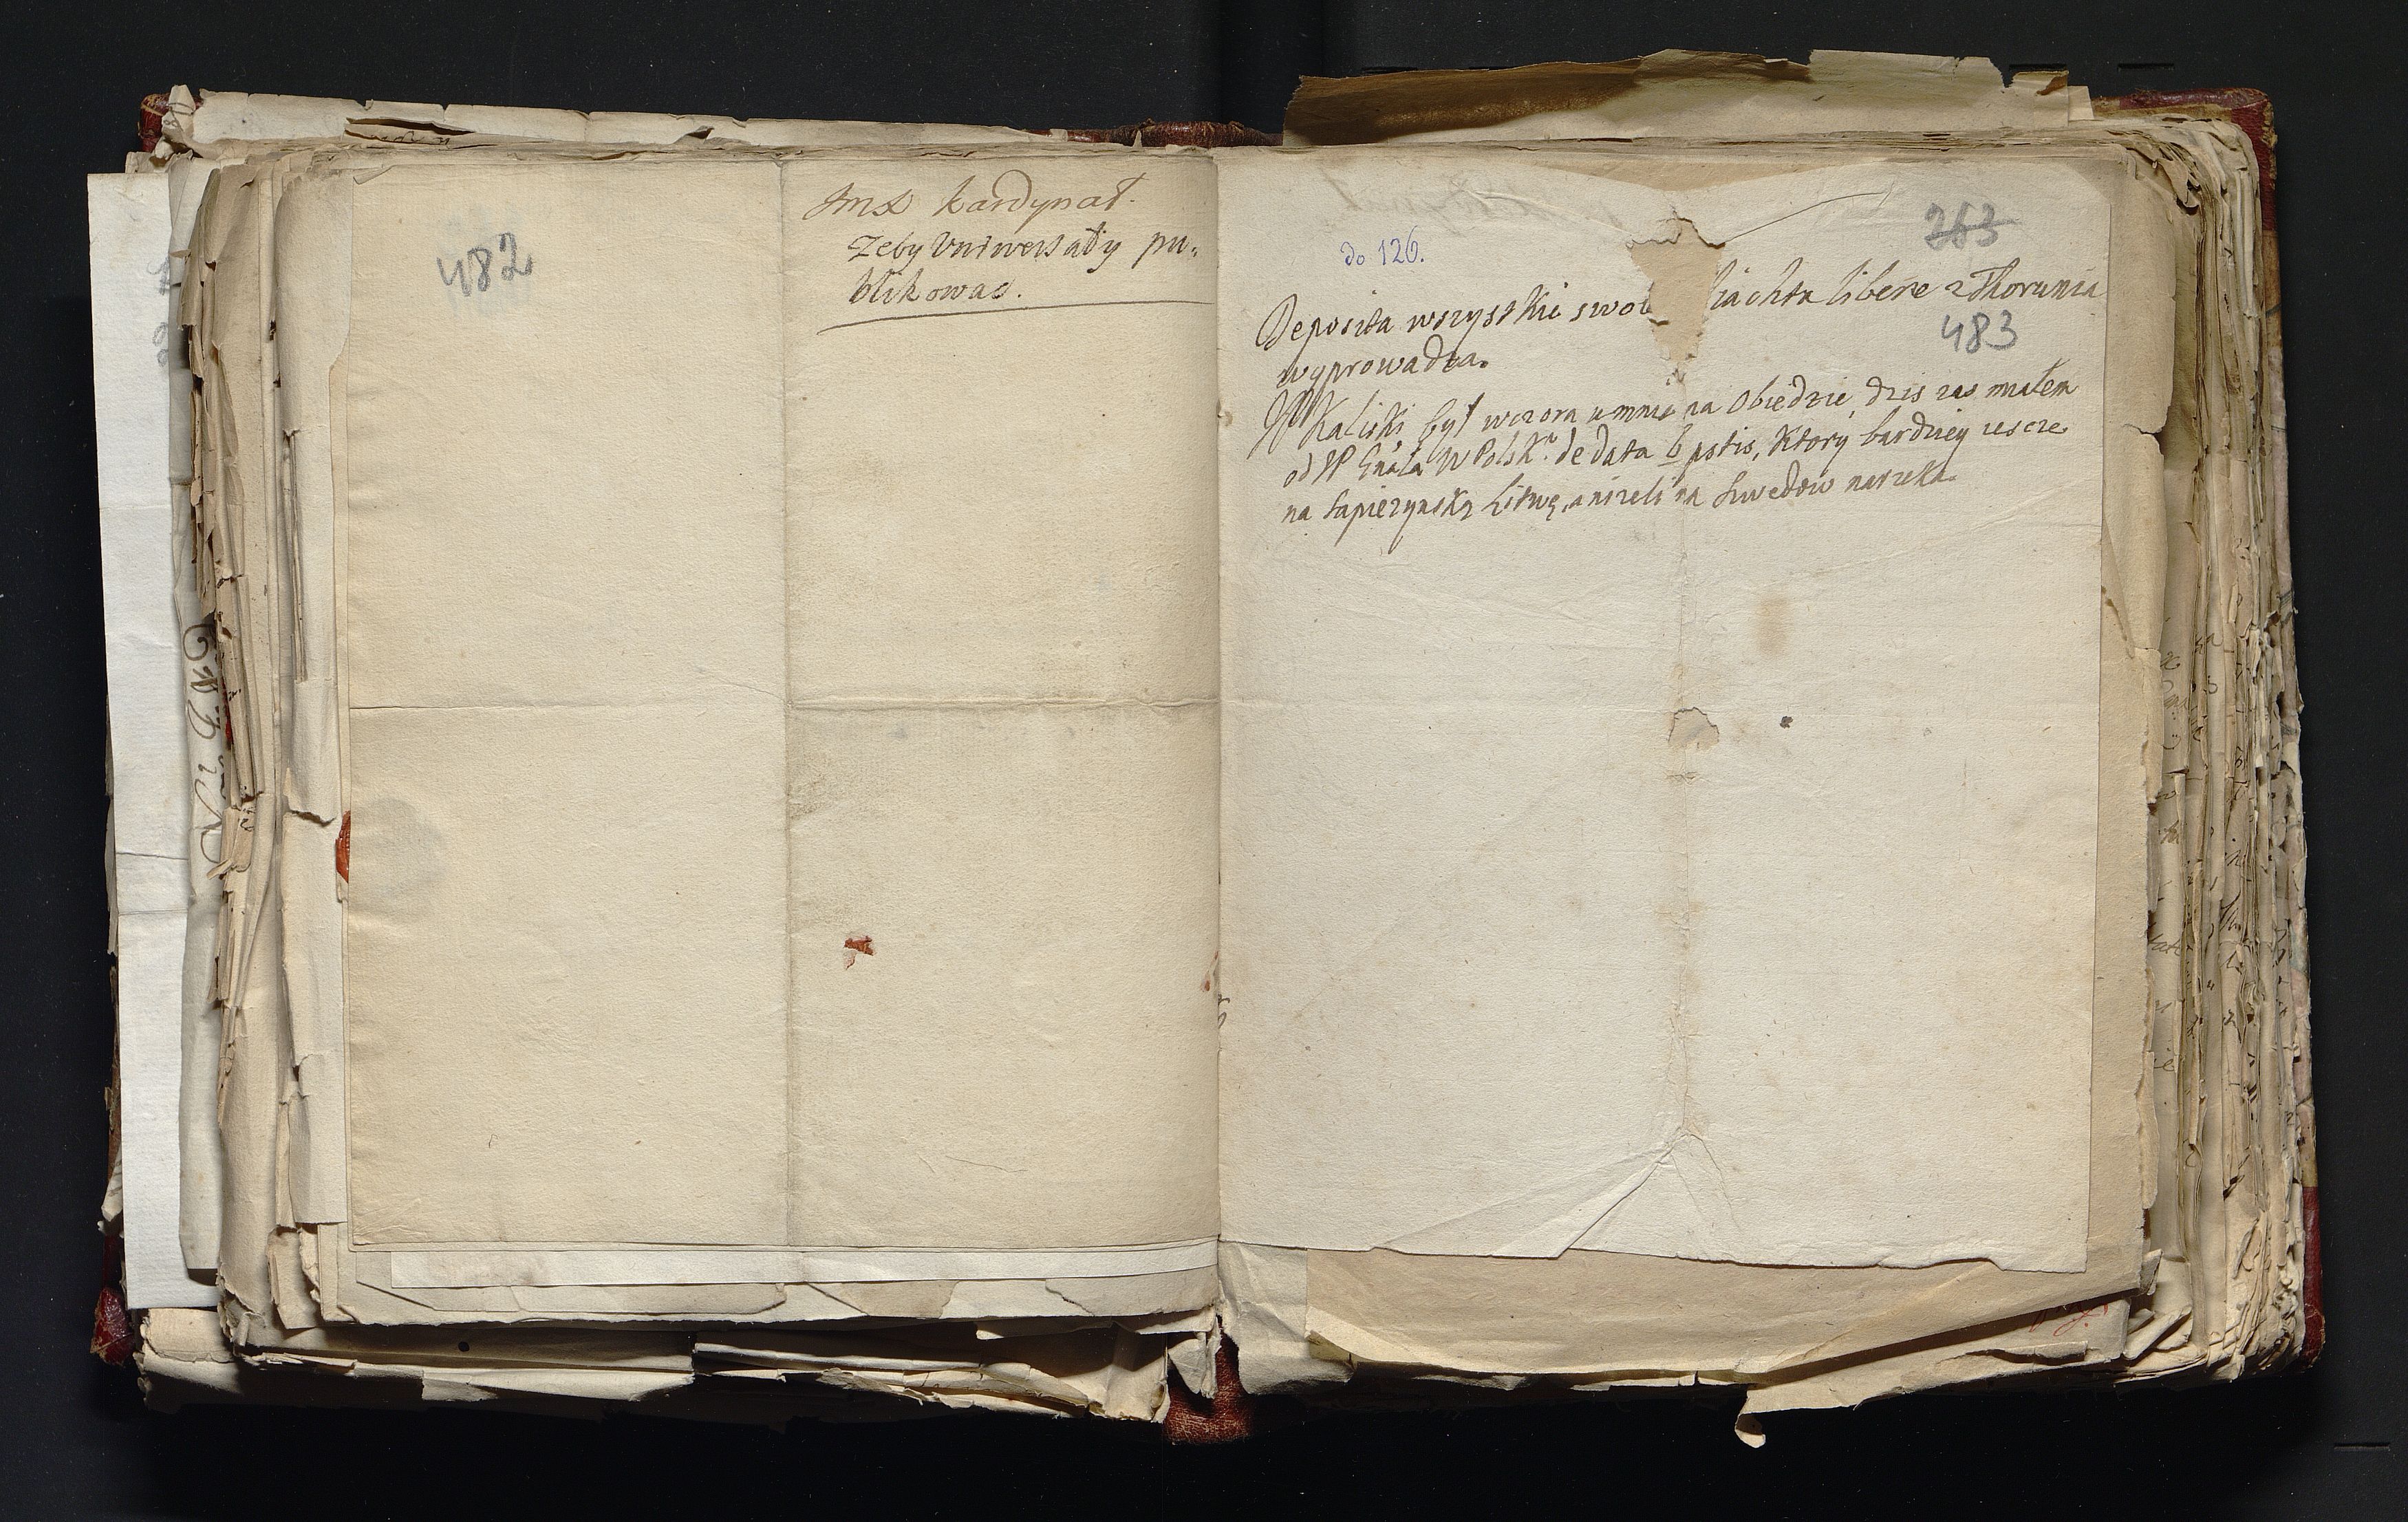 482
Jmx kardynał.
Zeby Vniwersały pu:
blikować.
do 126.
263
Deposita wszystkie swo liachta libere z Thorunia
483
wyprowadza.
JP Kaliski był wczora u mnie na Obiedzie, dzis zas miałem
od JP Gnała W Polsk. de data 6 pstis, Ktory bardziey iescze
na Sapiezynską Litwę, anizeli na Szwedow narzeka.